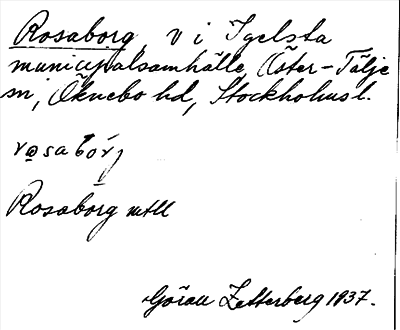 Rosaborg, v i Igelsta
municipalsamhälle, Öster-Tälje
sn, Öknebo hd, Stockholms l.
rosaborj
Rosaborg mtll
Göran Zetterberg 1937.